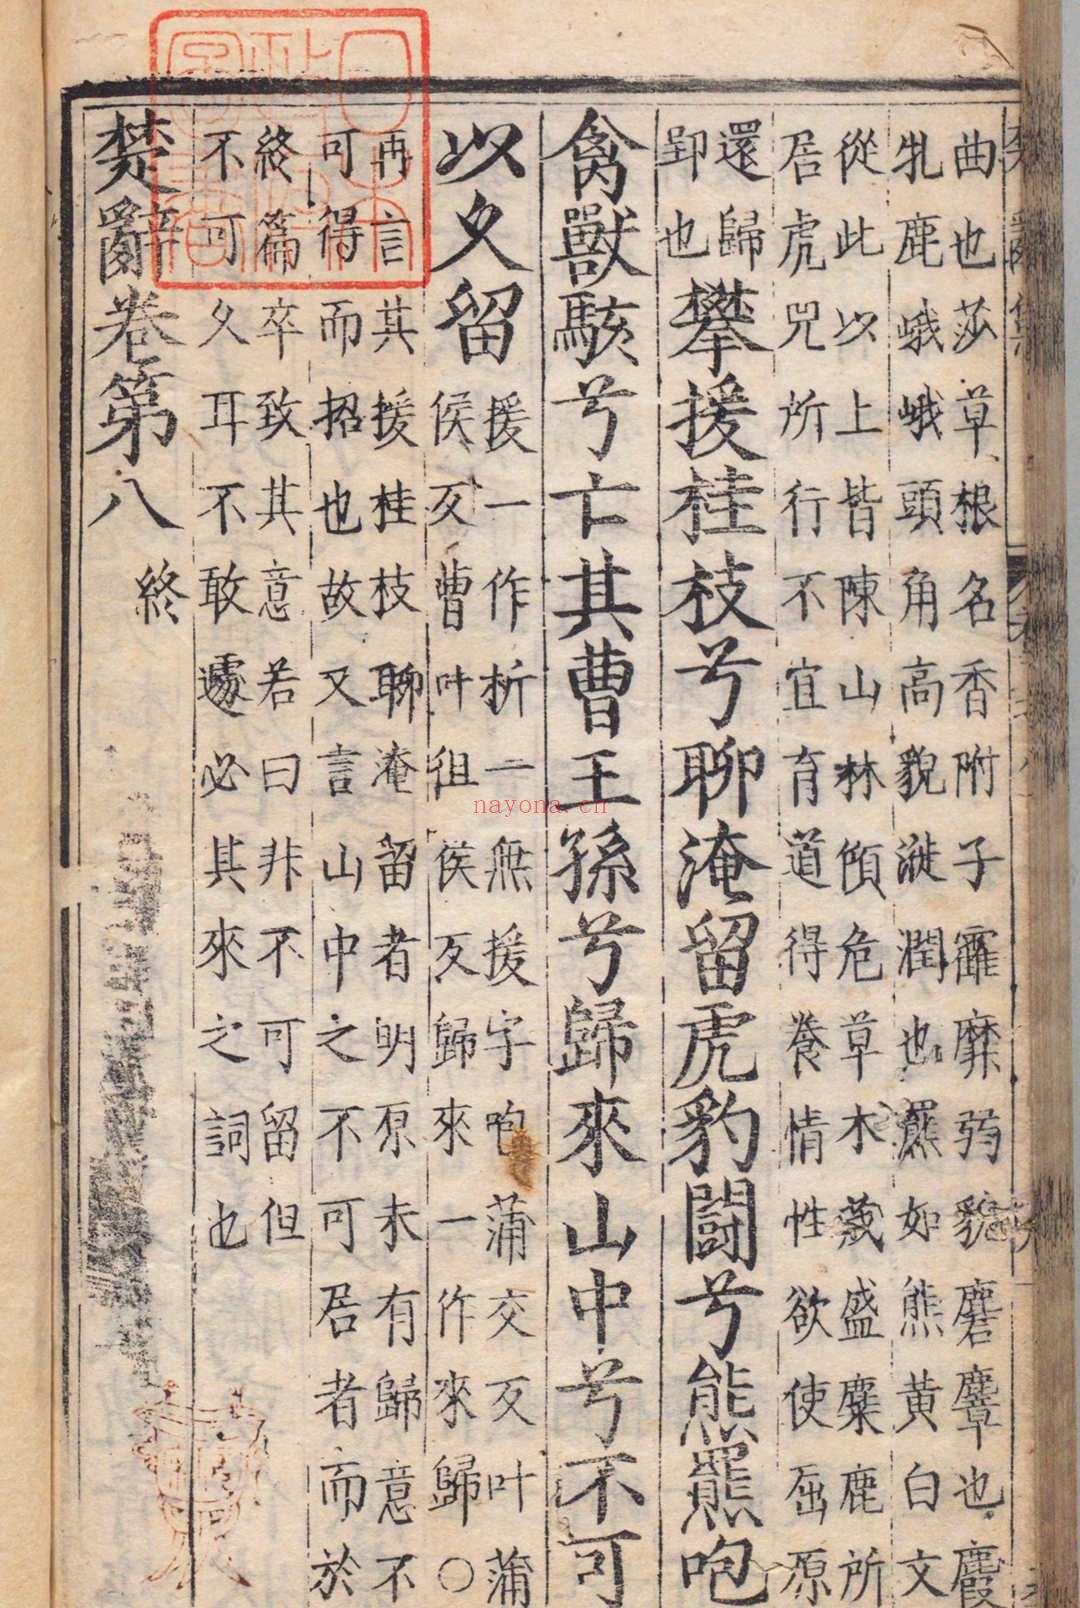 曲也莎草根名香附子靃靡弱貌麏麞也麚
牝鹿峨峨頭角高貌漇潤也羆如熊黄白文
從此以上皆陳山林傾危草木茂盛麋鹿所
居虎兕所行不宜育道得養情性欲使屈原
還歸
郢也
攀援桂枝兮聊淹留虎豹鬭兮熊羆咆
禽獸駭兮亡其曹王孫兮歸來山中兮不可
以久留
援一作折一無援字咆蒲交反叶蒲
侯反曹叶徂侯反歸來一作來歸○
再言其援桂枝聊淹留者明原未有歸意不
可得而招也故又言山中之不可居者而於
終篇卒致其意若曰非不可留但
不可久耳不敢遽必其來之詞也
楚辭卷第八
終
nayona.cn